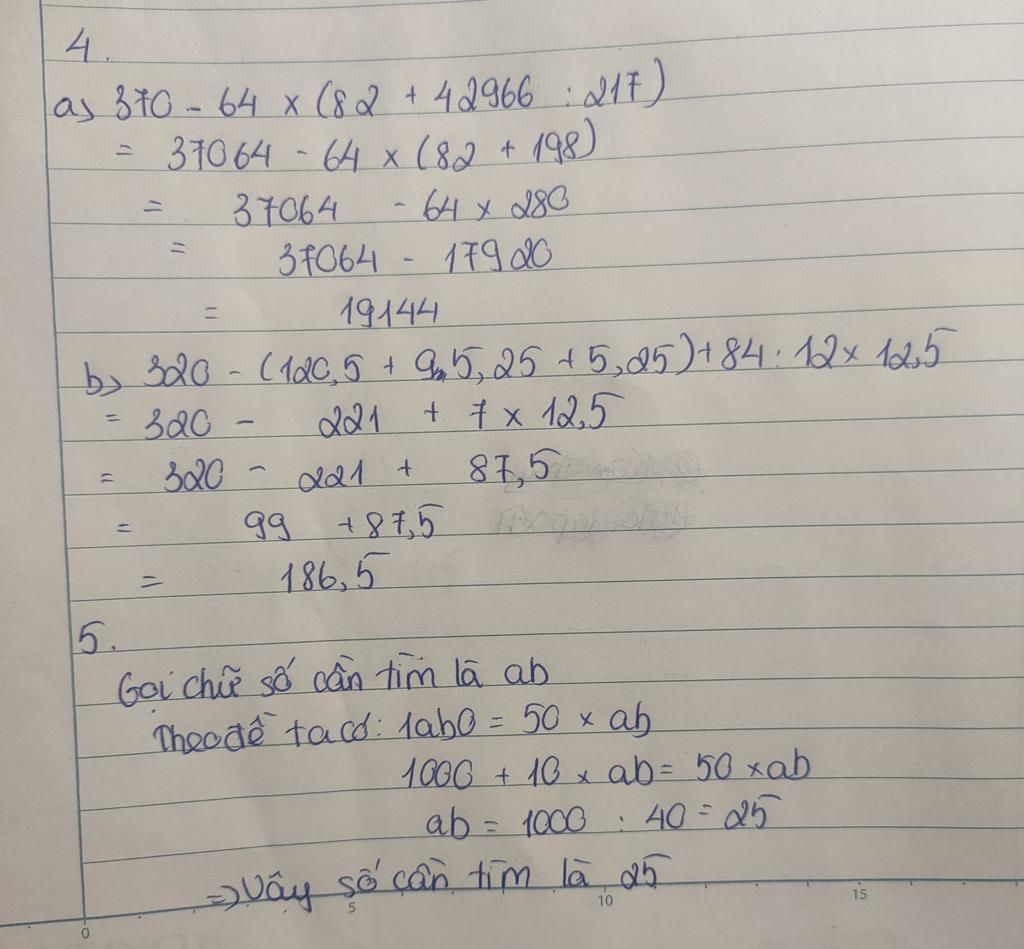 4.
a) 370 - 64 x (82 + 42966 : 217)
= 37064 - 64 x (82 + 198)
= 37064 - 64 x 280
= 37064 - 17920
= 19144
b) 320 - (120,5 + 9 5,25 + 5,25) + 84 : 12 x 12,5
= 320 - 221 + 7 x 12,5
= 320 - 221 + 87,5
= 99 + 87,5
= 186,5
5.
Gọi chữ số cần tìm là ab
Theo đề ta có: 1ab0 = 50 x ab
1000 + 10 x ab = 50 x ab
ab = 1000 : 40 = 25
=> Vậy số cần tìm là 25
0 5 10 15